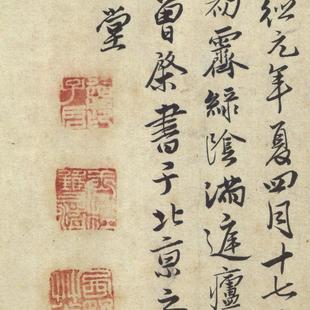 德元年夏四月十七
初霽綠陰滿庭
曾棨書于北京之
堂